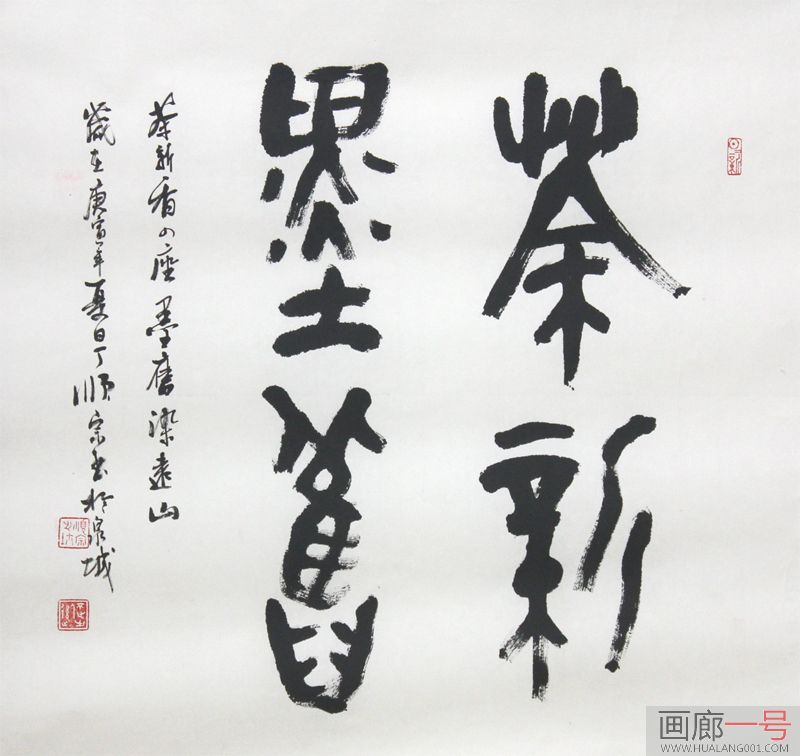 茶新
墨舊
茶新香四座墨舊染遠山
歲在庚寅年夏日丁順宗書於泉城
画廊一号
WWW.HUALANG001.COM